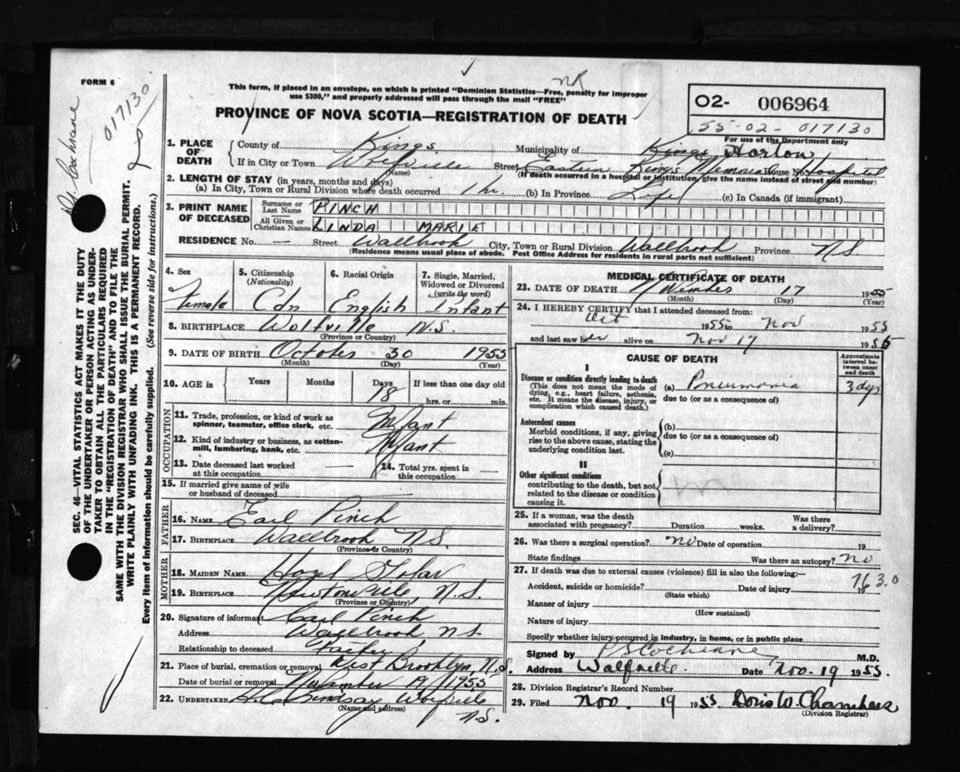 FORM 6
Dr. Cochrane
017130
NR
This form, if placed in an envelope, on which is printed "Dominion Statistics—Free, penalty for improper
use $300," and properly addressed will pass through the mail "FREE"
PROVINCE OF NOVA SCOTIA—REGISTRATION OF DEATH
02- 006964
55-02-017130
For use of the Department only
1. PLACE OF DEATH
County of Kings Municipality of Kings Horton
If in City or Town Wolfville Street Eastern Kings Memorial House No. Hospital
(Name) (If death occurred in a hospital or institution, give the name instead of street and number)
2. LENGTH OF STAY (in years, months and days)
(a) In City, Town or Rural Division where death occurred 1 hr (b) In Province Life (c) In Canada (if immigrant)
3. PRINT NAME OF DECEASED
Surname or Last Name PINCH
All Given or Christian Names LINDA MARIE
RESIDENCE No. — Street Wallbrook City, Town or Rural Division Wallbrook Province N.S.
(Residence means usual place of abode. Post Office Address for residents in rural parts not sufficient)
4. Sex Female
5. Citizenship (Nationality) Cdn
6. Racial Origin English
7. Single, Married, Widowed or Divorced (write the word) Infant
8. BIRTHPLACE Wolfville N.S.
(Province or Country)
9. DATE OF BIRTH October 30 1955
(Month) (Day) (Year)
10. AGE in Years Months Days 18 If less than one day old
hrs. or min.
OCCUPATION
11. Trade, profession, or kind of work as spinner, teamster, office clerk, etc. Infant
12. Kind of industry or business, as cotton-mill, lumbering, bank, etc. Infant
13. Date deceased last worked at this occupation — 14. Total yrs. spent in this occupation —
15. If married give name of wife or husband of deceased
FATHER
16. NAME Earl Pinch
17. BIRTHPLACE Wallbrook N.S.
(Province or Country)
MOTHER
18. MAIDEN NAME
19. BIRTHPLACE Newtonville N.S.
(Province or Country)
20. Signature of informant Earl Pinch
Address Wallbrook N.S.
Relationship to deceased Father
21. Place of burial, cremation or removal West Brooklyn, N.S.
Date of burial or removal November 19 1955
22. UNDERTAKER Lindsay Wolfville
(Name and address) N.S.
MEDICAL CERTIFICATE OF DEATH
23. DATE OF DEATH November 17 1955
(Month) (Day) (Year)
24. I HEREBY CERTIFY that I attended deceased from:
Oct 1955 to Nov 1955
and last saw her alive on Nov 17 1955
CAUSE OF DEATH
Approximate interval between onset and death
I
Disease or condition directly leading to death (a) Pneumonia 3 dys
(This does not mean the mode of dying, e.g., heart failure, asthenia, etc. It means the disease, injury, or complication which caused death.)
due to (or as a consequence of)
Antecedent causes
Morbid conditions, if any, giving rise to the above cause, stating the underlying condition last.
(b)
due to (or as a consequence of)
(c)
II
Other significant conditions
contributing to the death, but not related to the disease or condition causing it.
25. If a woman, was the death associated with pregnancy? Duration weeks. Was there a delivery?
26. Was there a surgical operation? no Date of operation 19
State findings Was there an autopsy? no
27. If death was due to external causes (violence) fill in also the following:—
763.0
Accident, suicide or homicide? Date of injury 19
(State which)
Manner of injury
(How sustained)
Nature of injury
Specify whether injury occurred in industry, in home, or in public place
Signed by Cochrane M.D.
Address Wolfville Date Nov. 19 1955.
28. Division Registrar's Record Number
29. Filed Nov. 19 1955 Doris W. Chambers
(Division Registrar)
SEC. 46—VITAL STATISTICS ACT MAKES IT THE DUTY
OF THE UNDERTAKER OR PERSON ACTING AS UNDER-
TAKER TO OBTAIN ALL THE PARTICULARS REQUIRED
IN THE "REGISTRATION OF DEATH" AND TO FILE THE
SAME WITH THE DIVISION REGISTRAR WHO SHALL ISSUE THE BURIAL PERMIT.
WRITE PLAINLY WITH UNFADING INK. THIS IS A PERMANENT RECORD.
Every item of information should be carefully supplied. (See reverse side for instructions.)